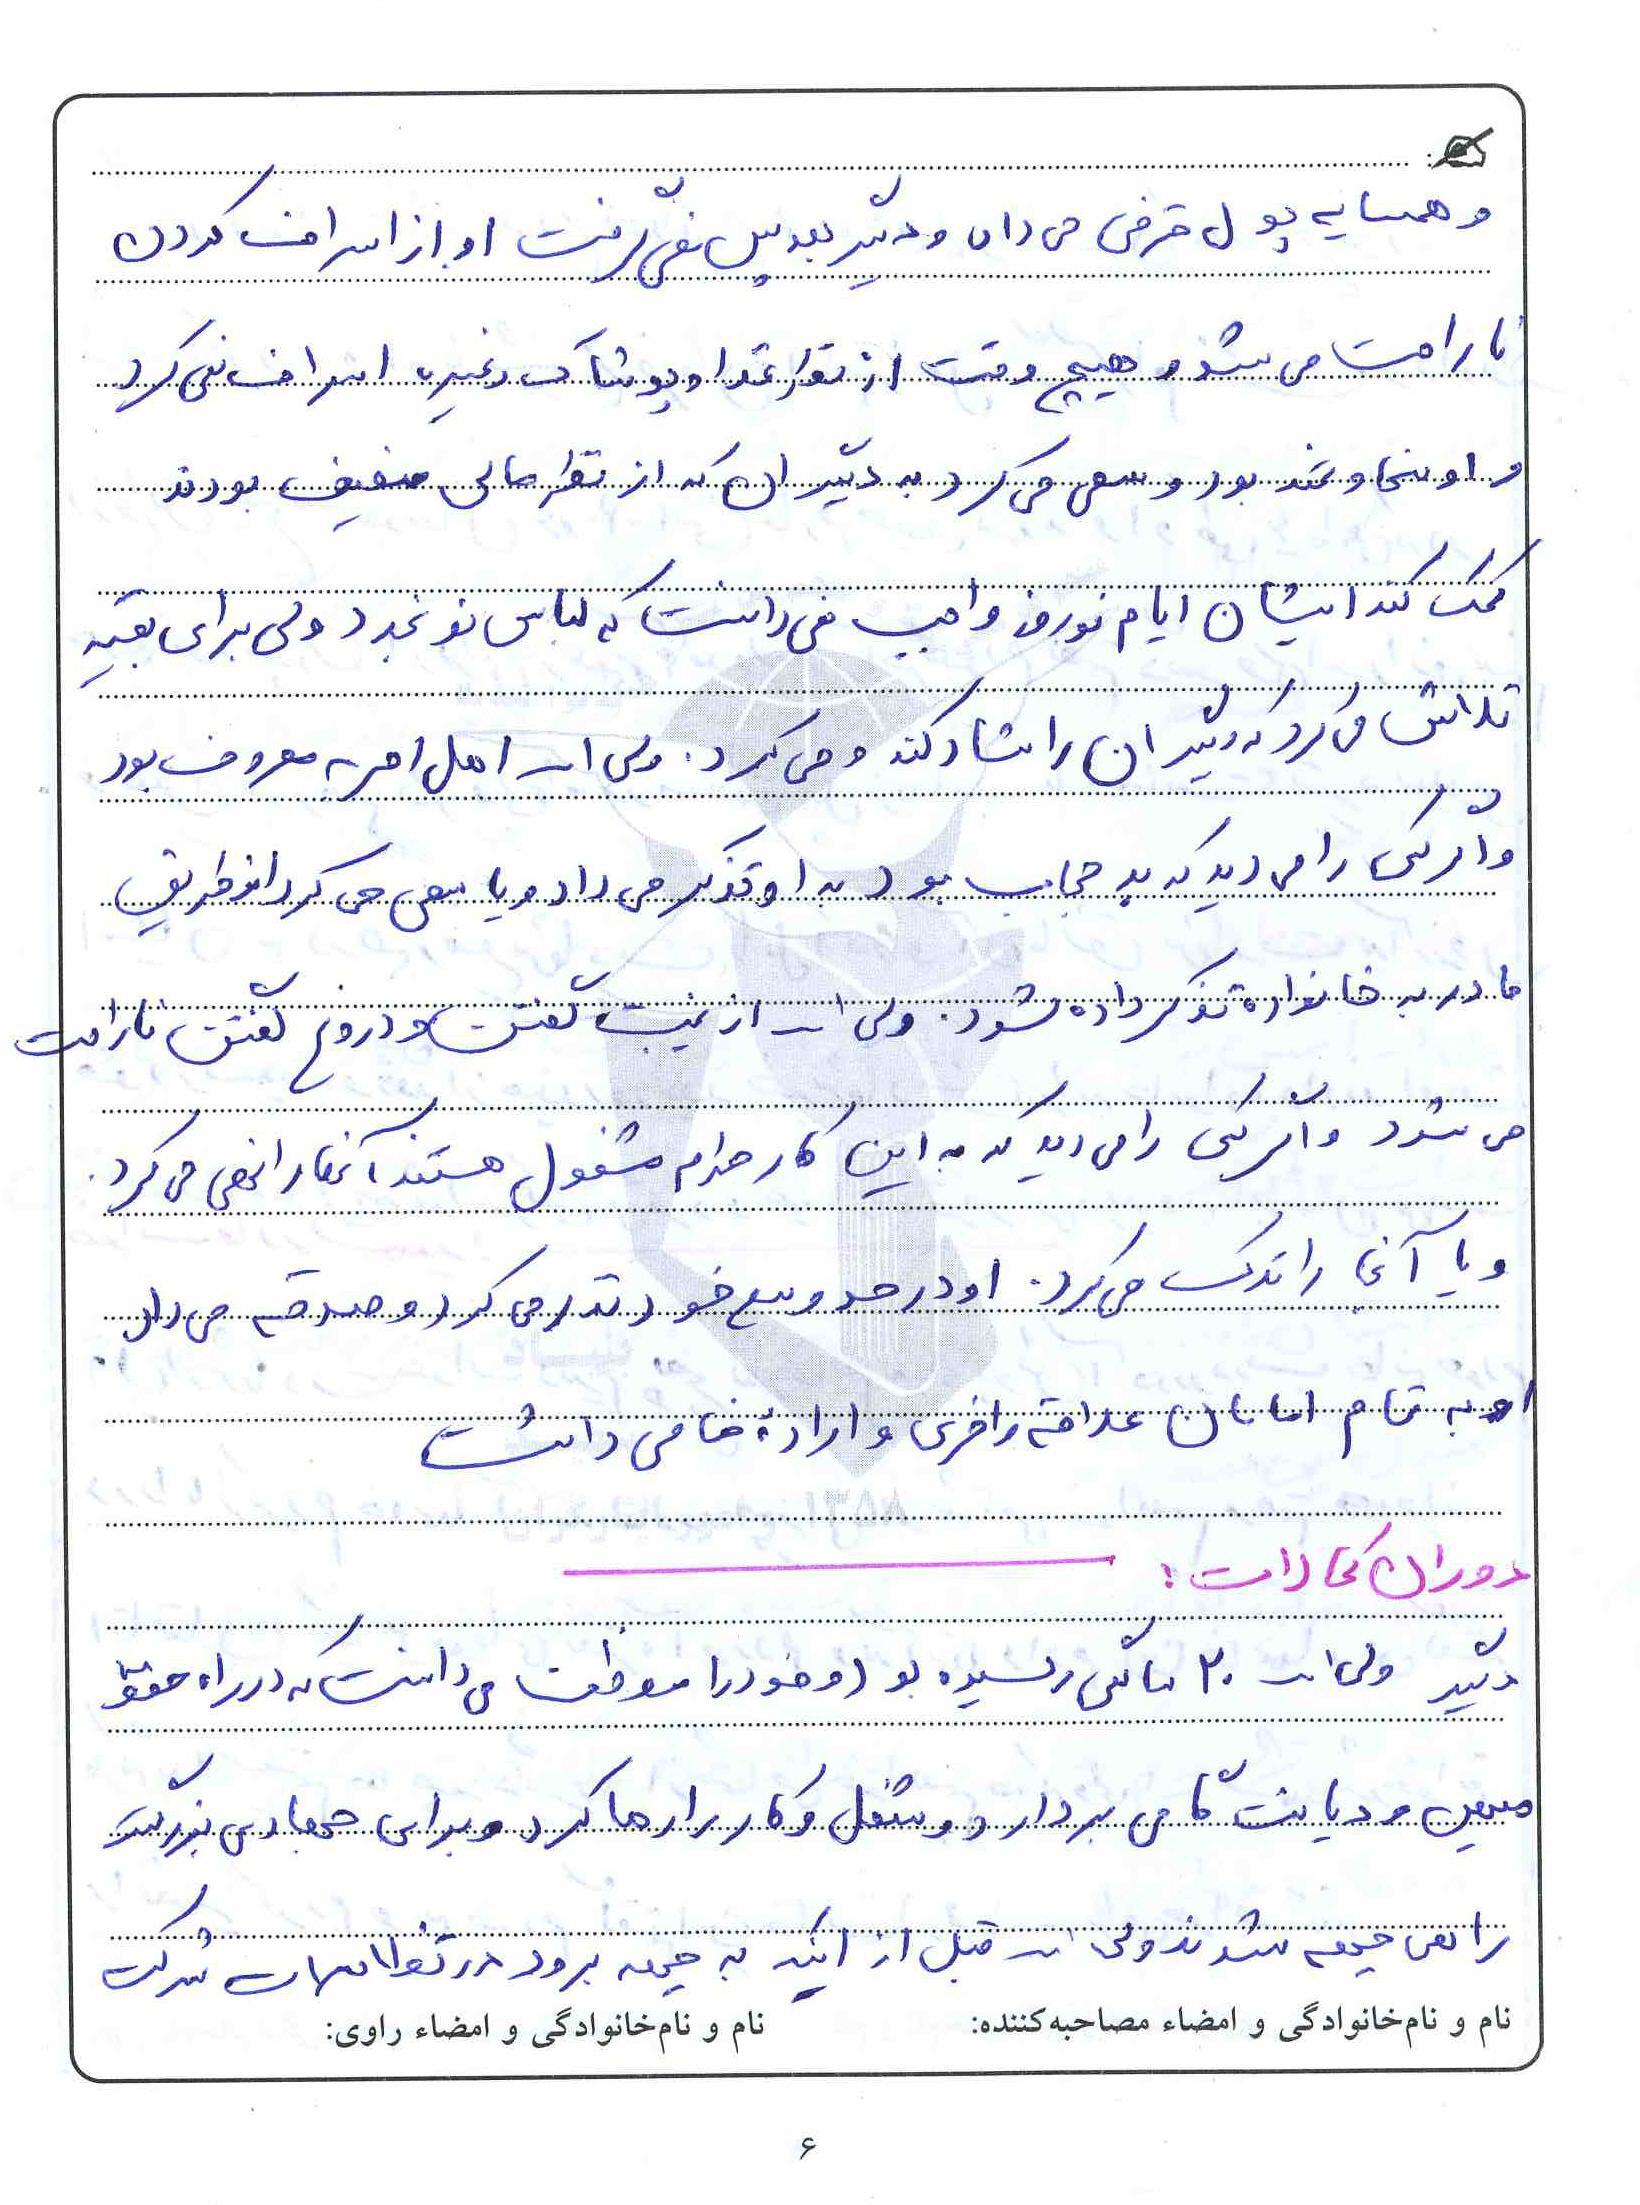 و همسایه پول قرضی می داد و دیگر بعد پس نمی گرفت او از اسراف کردن
ناراحت می شد و هیچ وقت از نظر غذا و پوشاک و غیره اسراف نمی کرد
و او سخاوتمند بود و سعی می کرد به دیگران که از نظر مالی ضعیف بودند
کمک کند ایشان ایام نوروز واجب نمی دانست که لباس نو بخرد ولی برای بقیه
تلاش می کرد که دیگران را شاد کند و می کرد. ولی ا... اهل امر به معروف بود
و اگر کسی را می دید که بد حجاب بود به او تذکر می داد و یا سعی می کرد از طریق
مادر به خانواده تذکر داده شود. ولی ا... از غیبت گفتن و دروغ گفتن ناراحت
می شود و اگر کسی را می دید که به این کار حرام مشغول هستند آنها را نهی می کرد.
و یا آنجا را ترک می کرد. او در حد وسع خود نذر می کرد و صدقه می داد
او به تمام امامان علاقه وافری و اراده خاصی داشت
دوران مجاردات:
دیگر ولی ا... ۲۰ سالگی رسیده بود و خود را موظف می دانست که در راه حفظ
میهن و دیانت گامی بردارد و شغل و کار را رها کرد و برای جهادی بزرگ
راهی جبهه شدند ولی ا... قبل از اینکه به جبهه برود در تظاهرات شرکت
نام و نام‌خانوادگی و امضاء مصاحبه‌کننده:
نام و نام‌خانوادگی و امضاء راوی:
۶